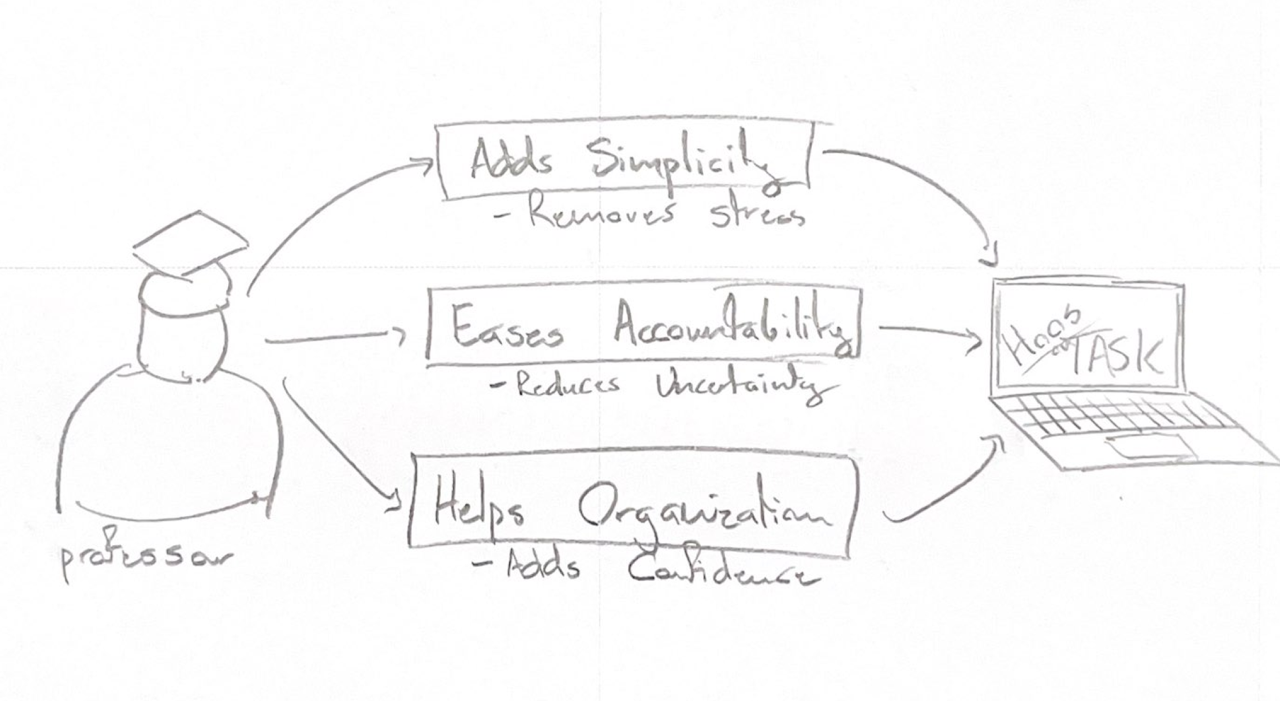 Adds Simplicity
- Removes stress
Eases Accountability
- Reduces Uncertainty
Helps Organization
- Adds Confidence
professor
Haas
on TASK